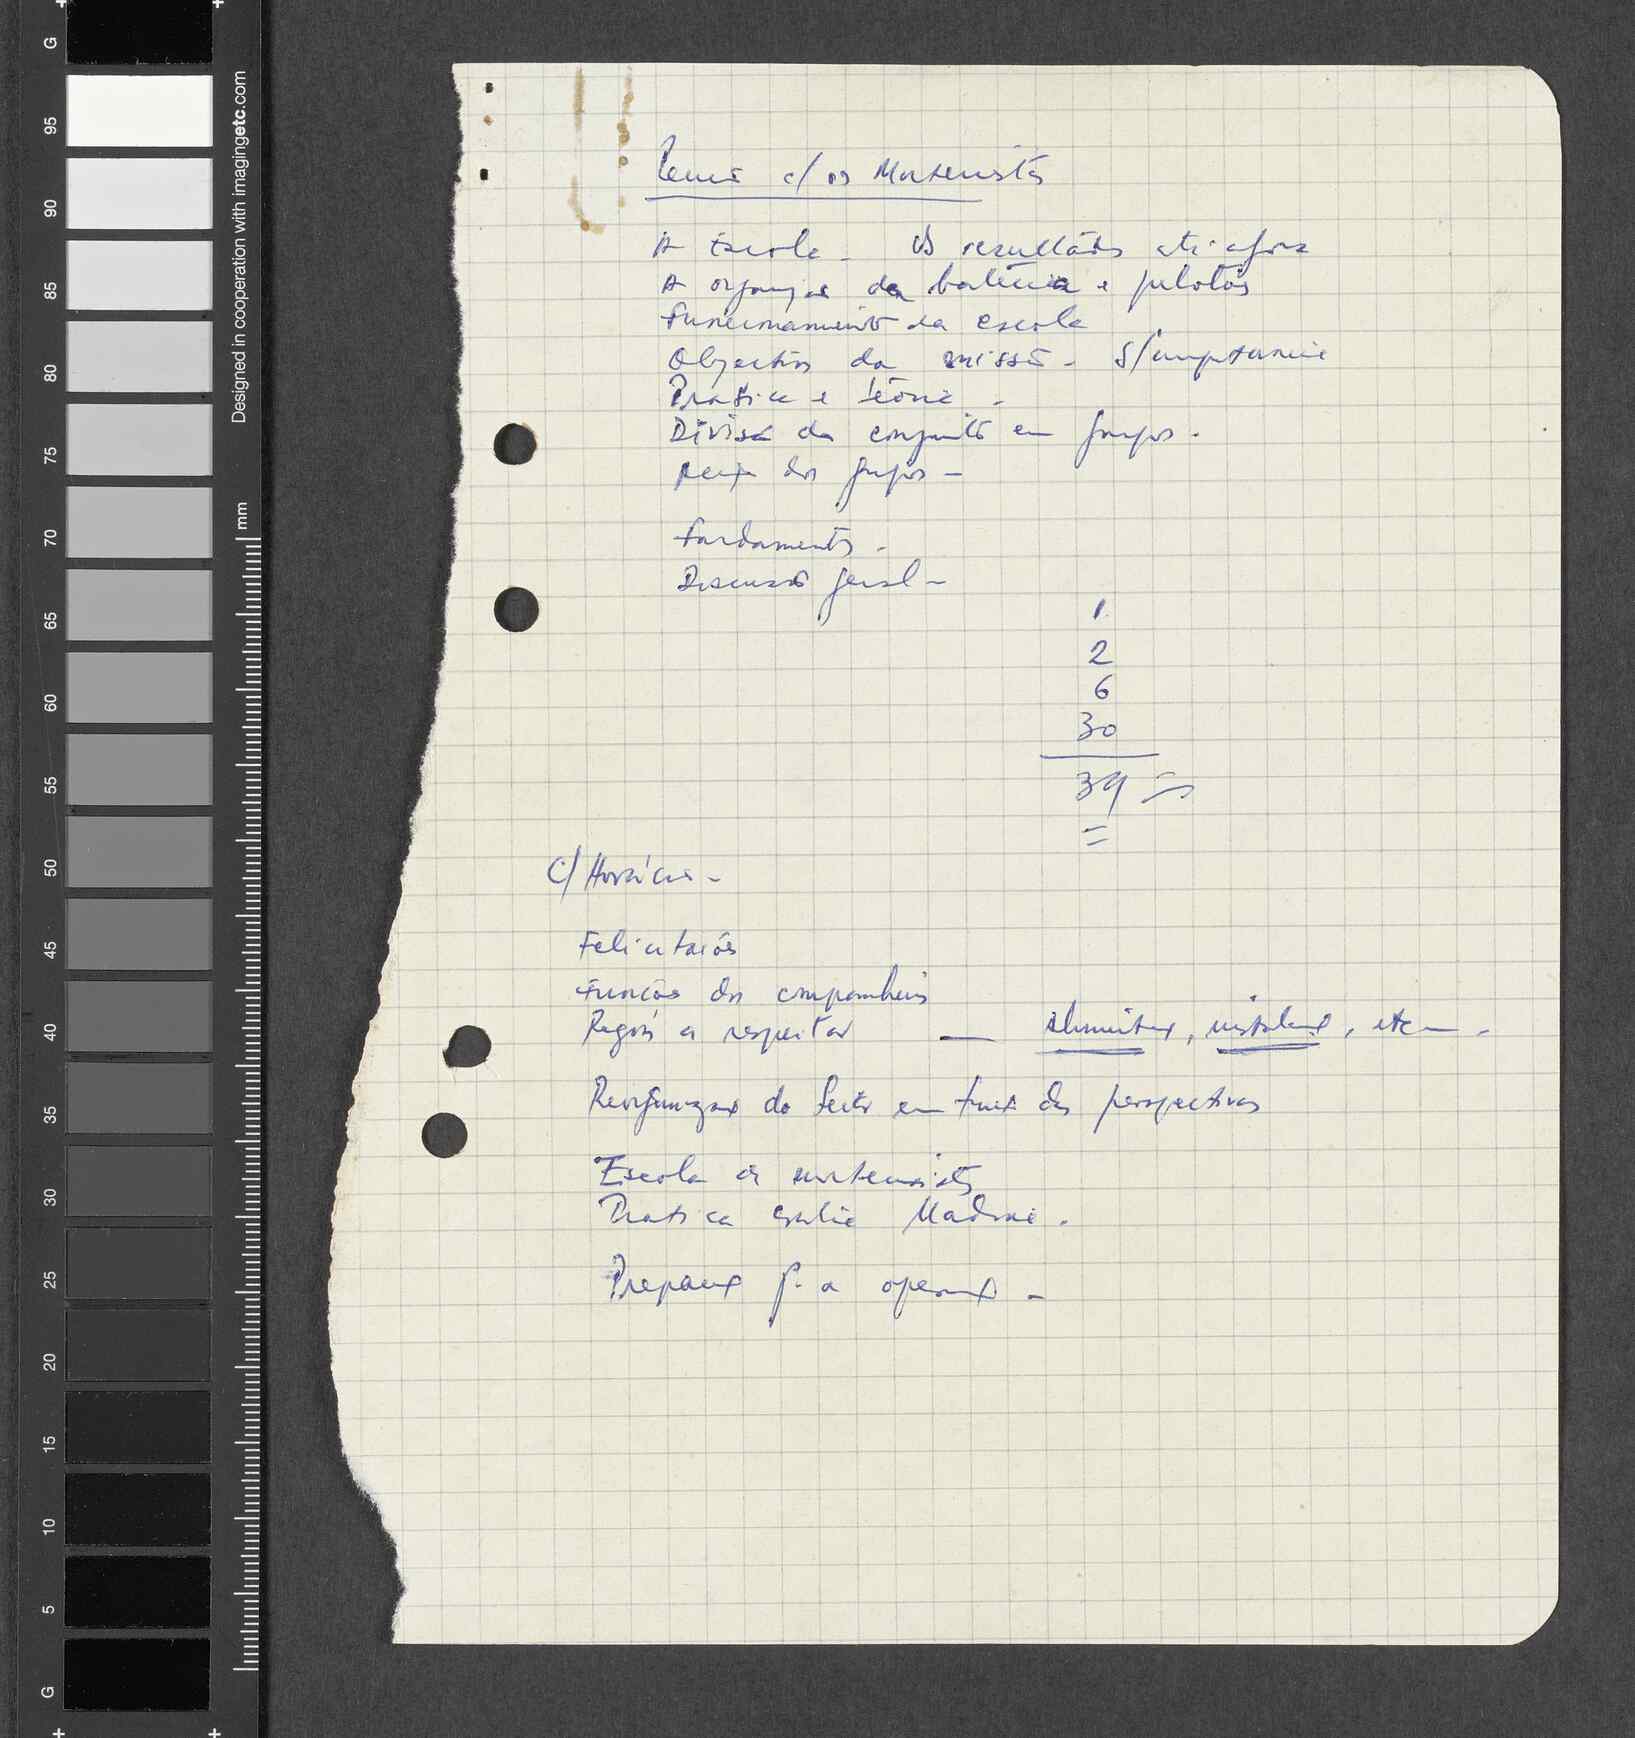 Reunião c/ os Morteiristas
A Escola - Os resultados até agora
A organização da bateria e pelotões
Funcionamento da escola
Objectivos da missão - S/ importancia
Pratica e teoria -
Divisão do conjunto em grupos.
dos grupos -
Fardamentos -
Discussão geral -
1
2
6
30
39
=
C/ Horácio -
Felicitações
Funções dos companheiros
Regras a respeitar — alimentação, instalação, etc -
Reorganização do Sector em função das perspectivas
Escola de morteiristas
Pratica contra Madina.
Preparação p. a operação -
G
95
90
85
80
75
70
65
60
55
50
45
40
35
30
25
20
15
10
5
G
Designed in cooperation with imagingetc.com
mm